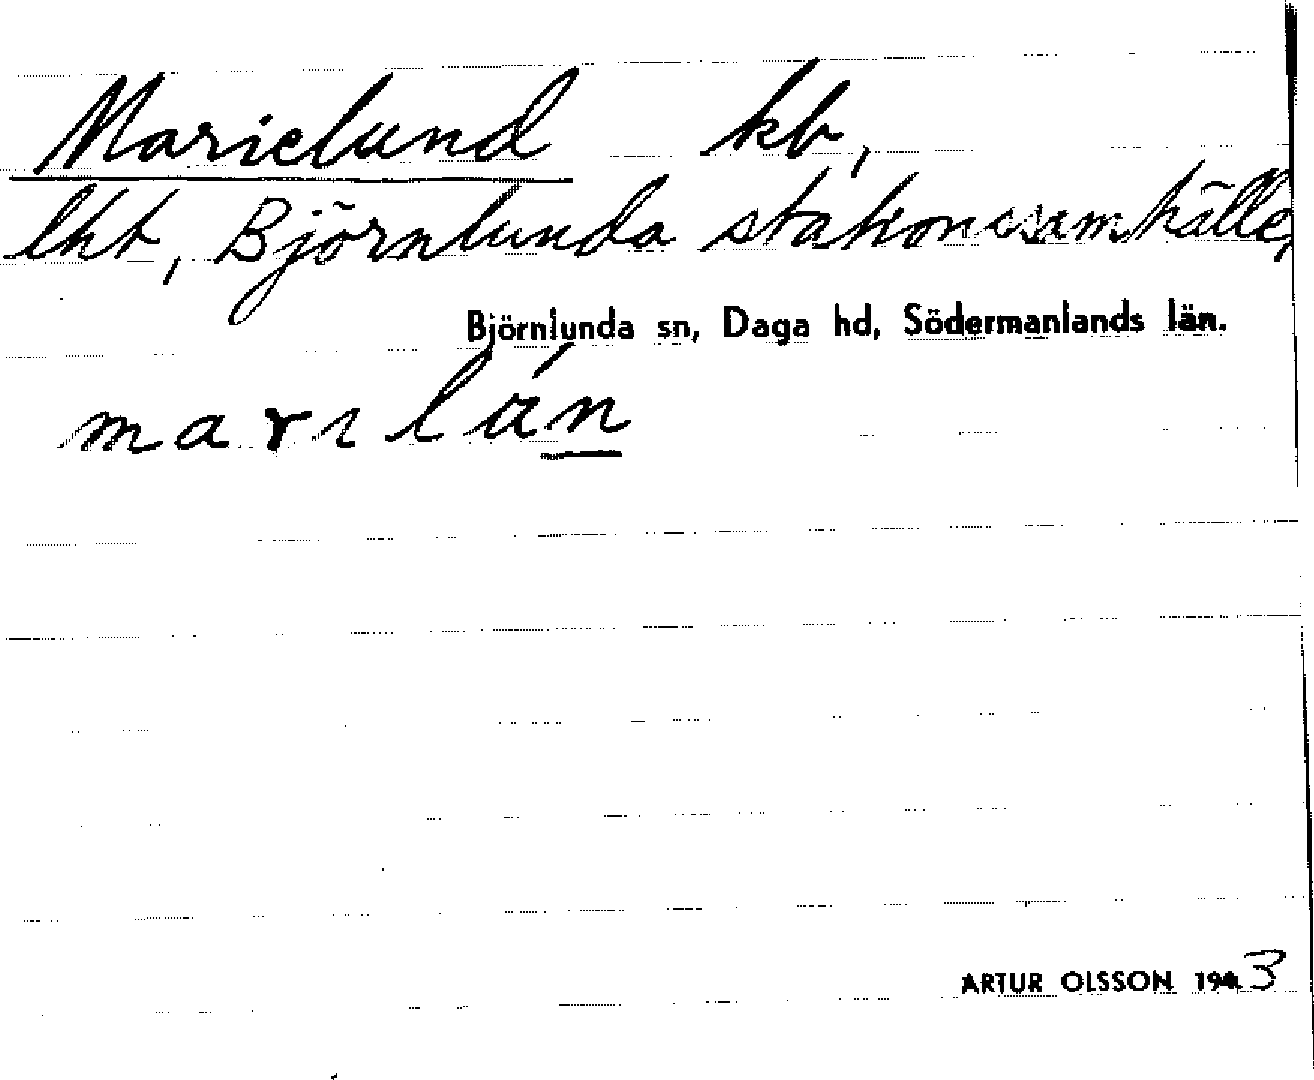 Marielund kb,
lht, Björnlunda stationssamhälle,
Björnlunda sn, Daga hd, Södermanlands län.
marɩlán
ARTUR OLSSON 1943